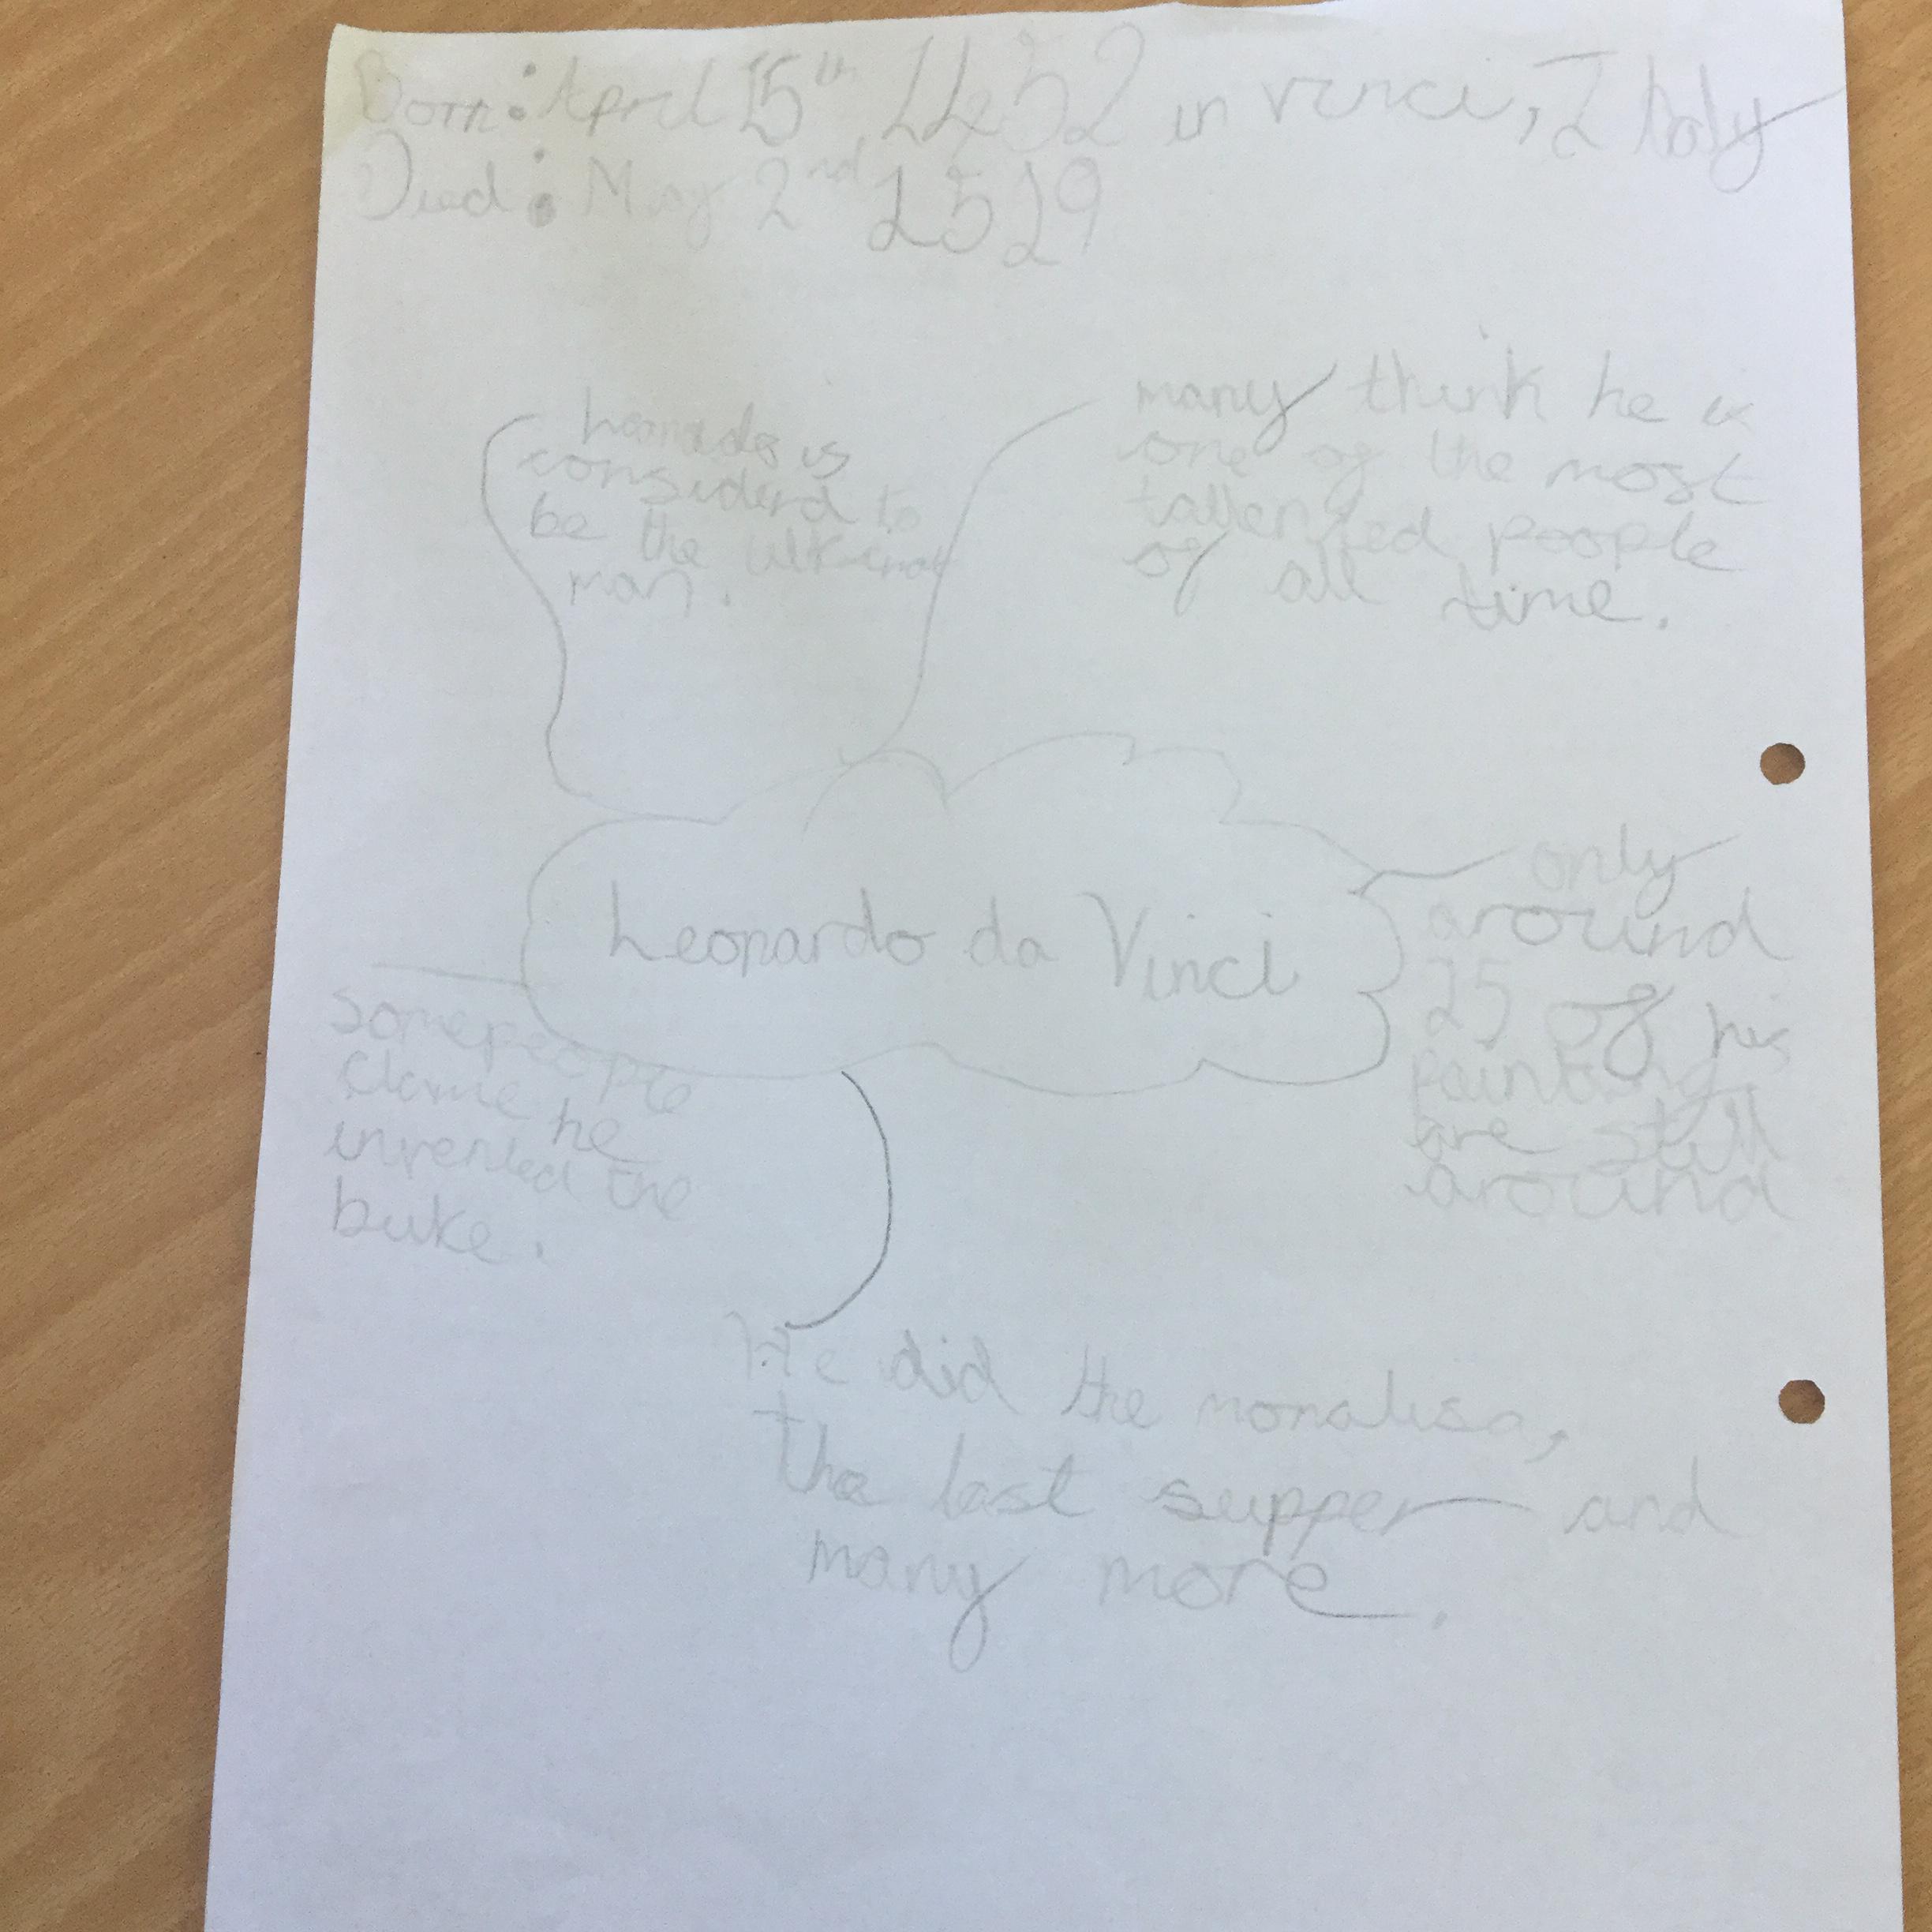 Born: April 15th, 1452 in vinci, Italy
Died: May 2nd 1519
Leonado is
considerd to
be the
man.
many think he is
one of the most
tallented people
of all time.
Leonardo da Vinci
only
around
25 of his
paintings
are still
around
somepeople
clame he
invented the
bike.
He did the monalisa,
the last supper and
many more.